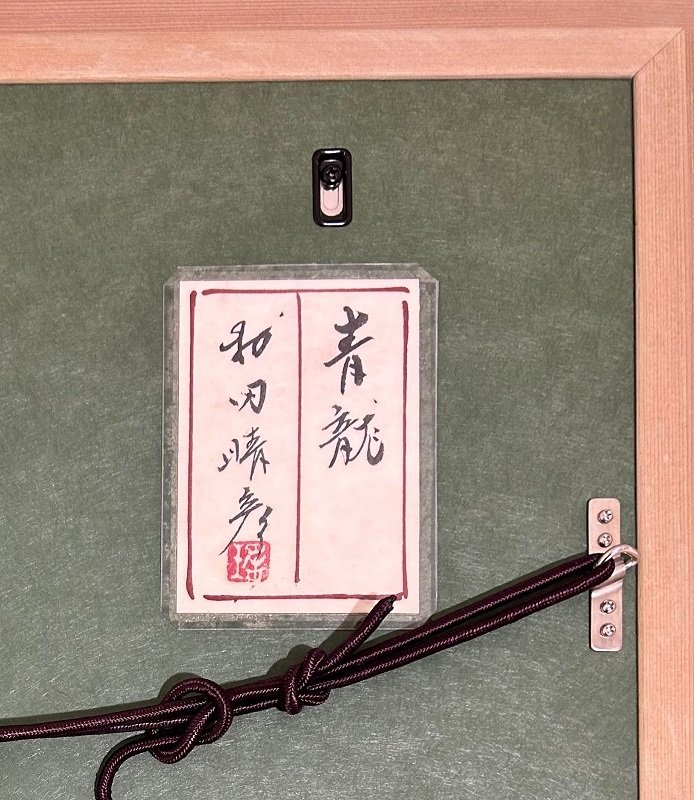 青龍
秋田晴彦